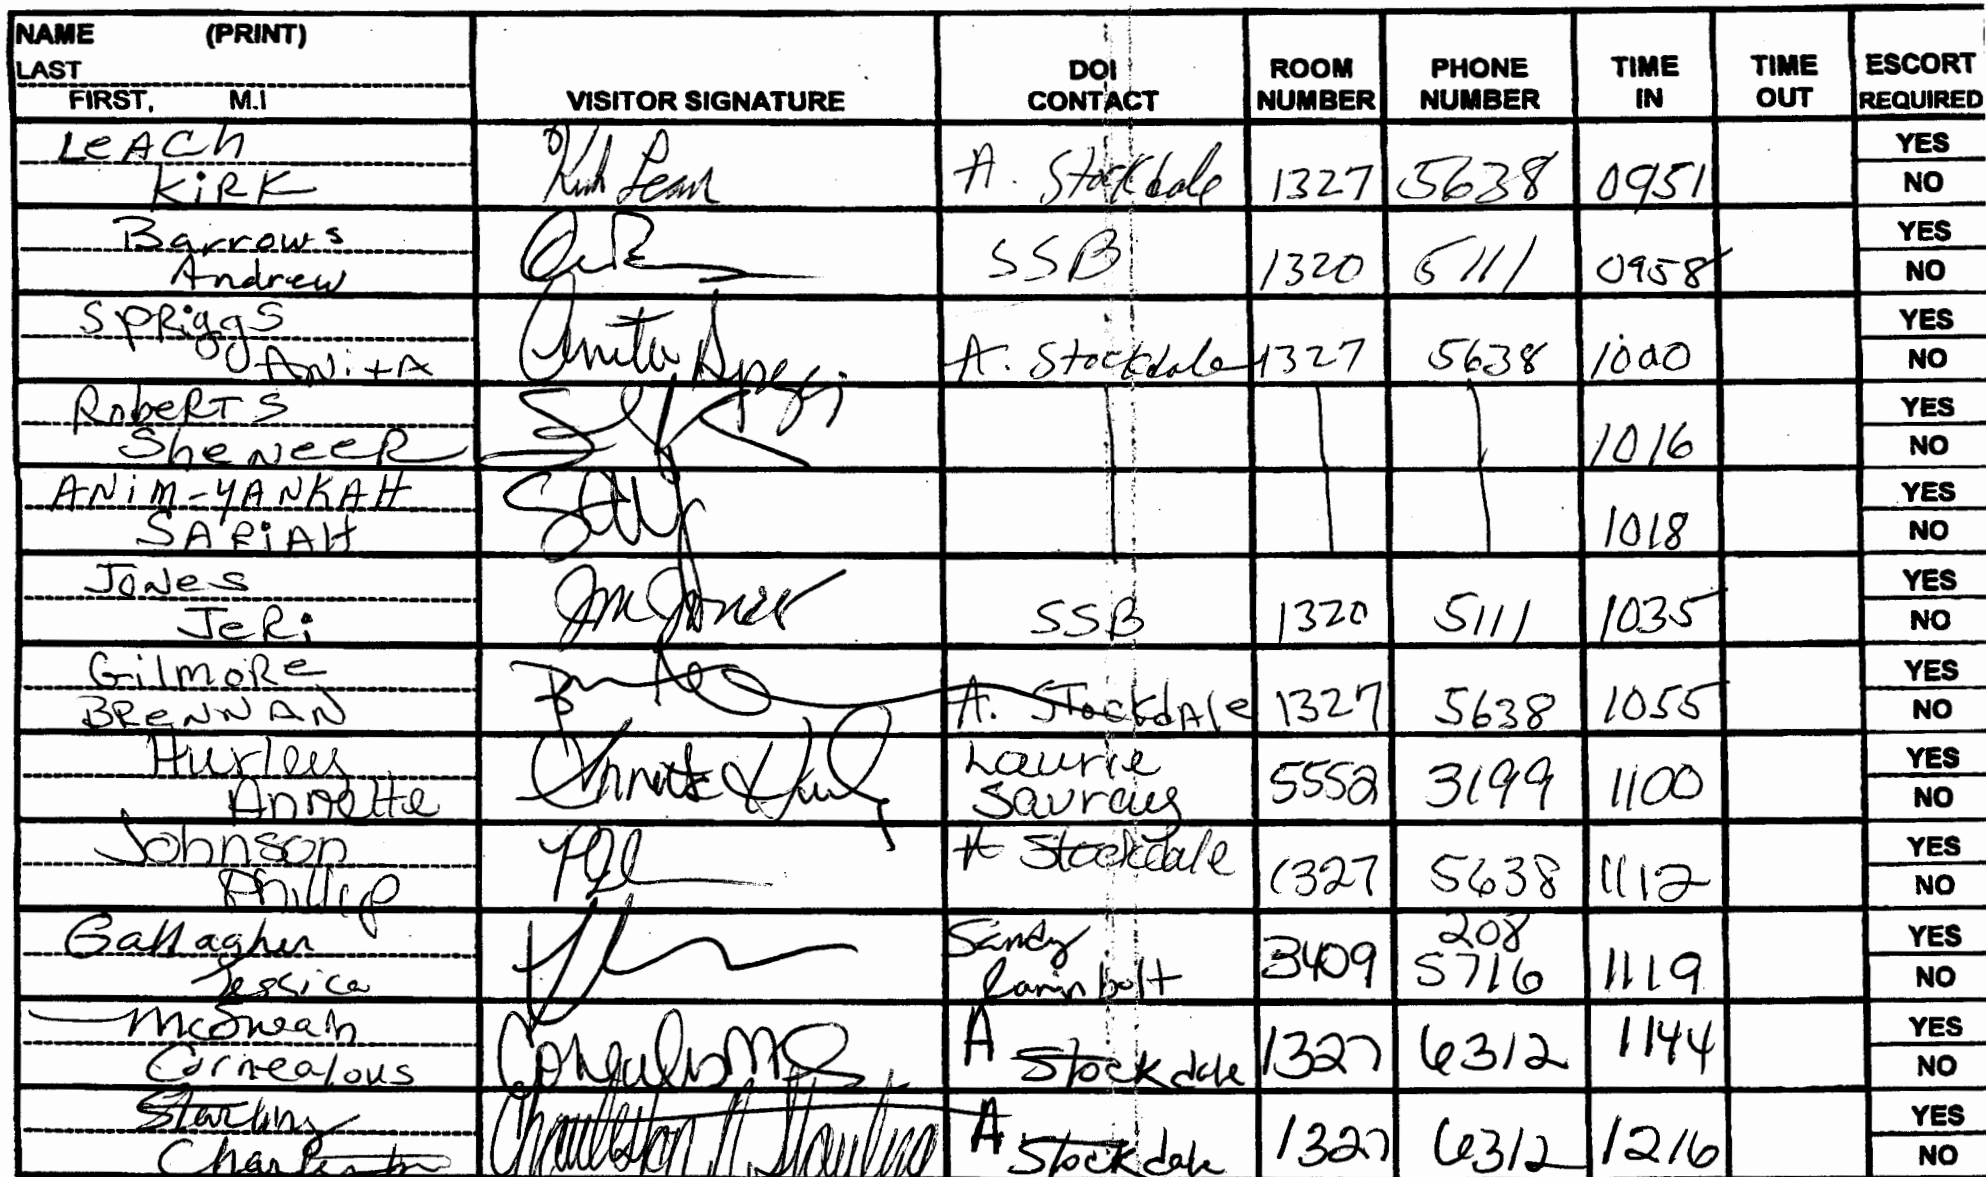 NAME (PRINT)
LAST
FIRST, M.I
VISITOR SIGNATURE
DOI CONTACT
ROOM NUMBER
PHONE NUMBER
TIME IN
TIME OUT
ESCORT REQUIRED
LeACh
KiRK
A. Stockdale 1327 5638 0951
YES
NO
Barrows
Andrew
SSB 1320 5111 0958
YES
NO
SPRiggS
ANitA
Anita
A. Stockdale 1327 5638 1000
YES
NO
RobeRTS
SheNeeR
1016
YES
NO
ANiM-YANKAH
SARiAH
1018
YES
NO
JoNes
JeRi
Jones
SSB 1320 5111 1035
YES
NO
GilmoRe
BReNNAN
A. StockdAle 1327 5638 1055
YES
NO
Hurley
Annette
Laurie
5552 3199 1100
YES
NO
Johnson
Phillip
A Stockdale
1327 5638 1112
YES
NO
Gallagher
Jessica
Sandy
3409 208
5716 1119
YES
NO
McSwain
Cornealous
A
Stockdale 1327 6312 1144
YES
NO
Starling
A
Stockdale 1327 6312 1216
YES
NO